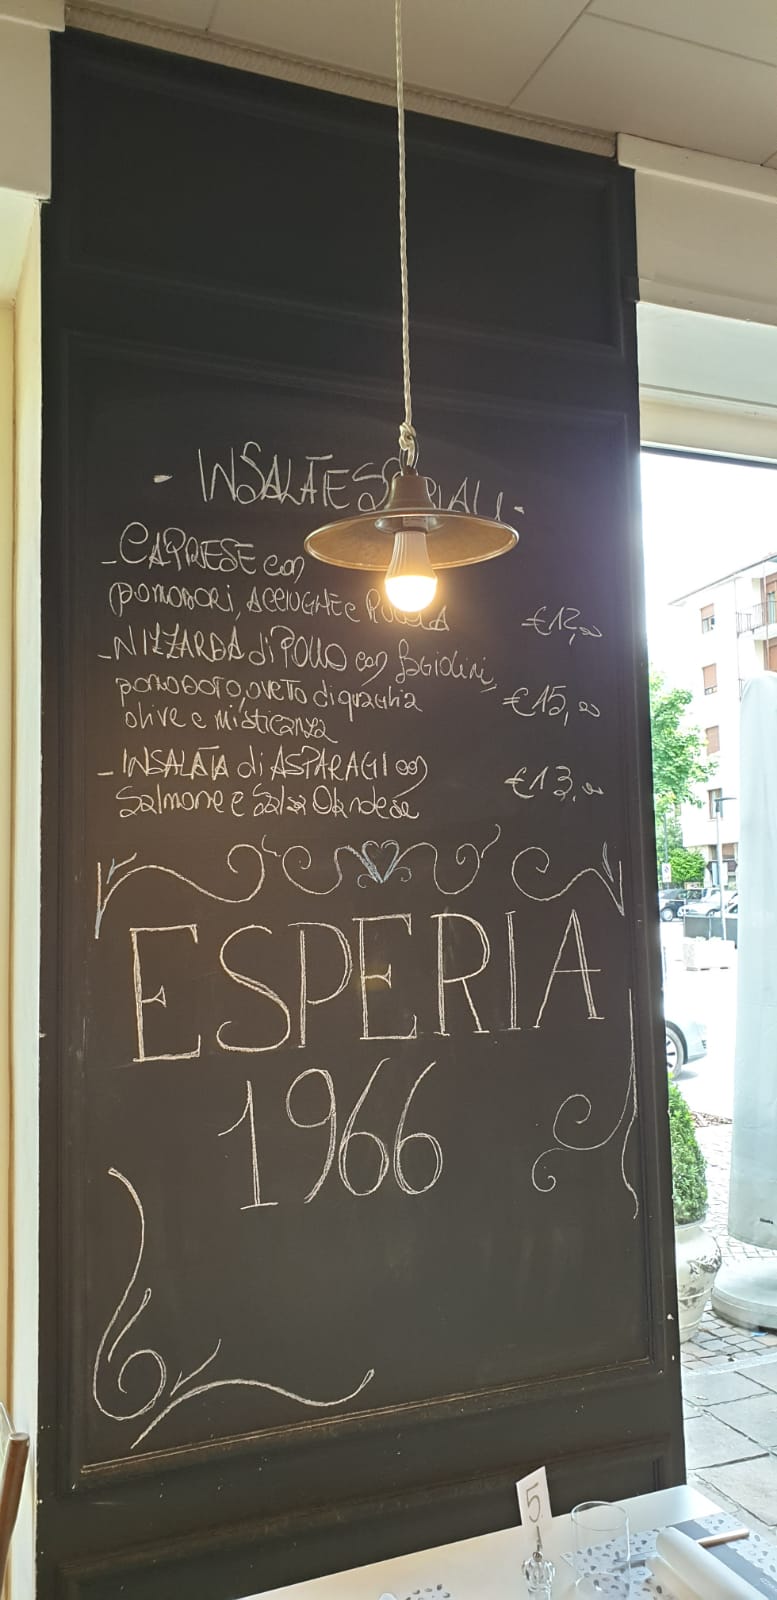 - INSALATE SPECIALI -
- CAPRESE con
pomodori, ACCIUGHE e RUCOLA
€12,00
- NIZZARDA di POLLO con fagiolini,
pomodoro, oveto di quaglia
olive e misticanza
€15,00
- INSALATA di ASPARAGI con
Salmone e Salsa Olandese
€13,00
ESPERIA
1966
5